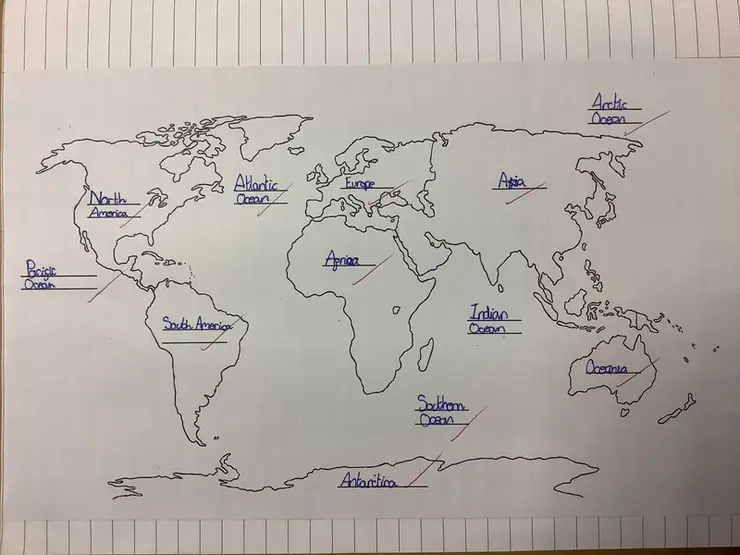 Arctic
Ocean
North
America
Atlantic
Ocean
Europe
Asia
Pacific
Ocean
Africa
South America
Indian
Ocean
Oceania
Southern
Ocean
Antarctica